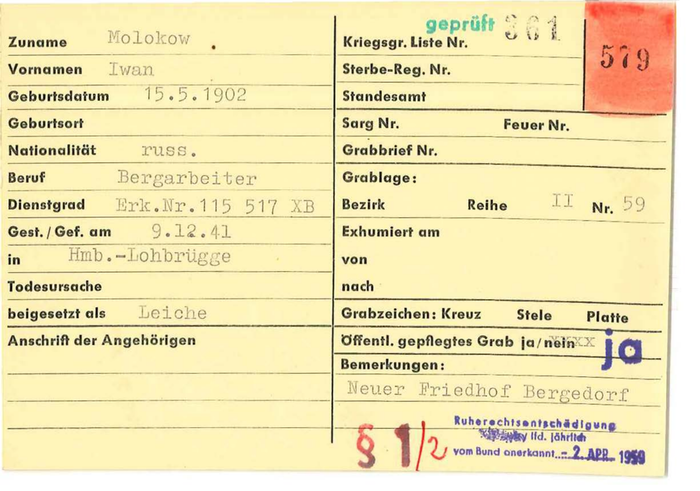 Zuname Molokow .
Vornamen Iwan
Geburtsdatum 15.5.1902
Geburtsort
Nationalität russ.
Beruf Bergarbeiter
Dienstgrad Erk.Nr.115 517 XB
Gest./Gef. am 9.12.41
in Hmb.-Lohbrügge
Todesursache
beigesetzt als Leiche
Anschrift der Angehörigen
geprüft 361
579
Kriegsgr. Liste Nr.
Sterbe-Reg. Nr.
Standesamt
Sarg Nr. Feuer Nr.
Grabbrief Nr.
Grablage:
Bezirk Reihe II Nr. 59
Exhumiert am
von
nach
Grabzeichen: Kreuz Stele Platte
Öffentl. gepflegtes Grab ja/nein xxxx ja
Bemerkungen:
Neuer Friedhof Bergedorf
§ 1/2
Ruherechtsentschädigung
lfd. jährlich
vom Bund anerkannt - 2. APR. 1959